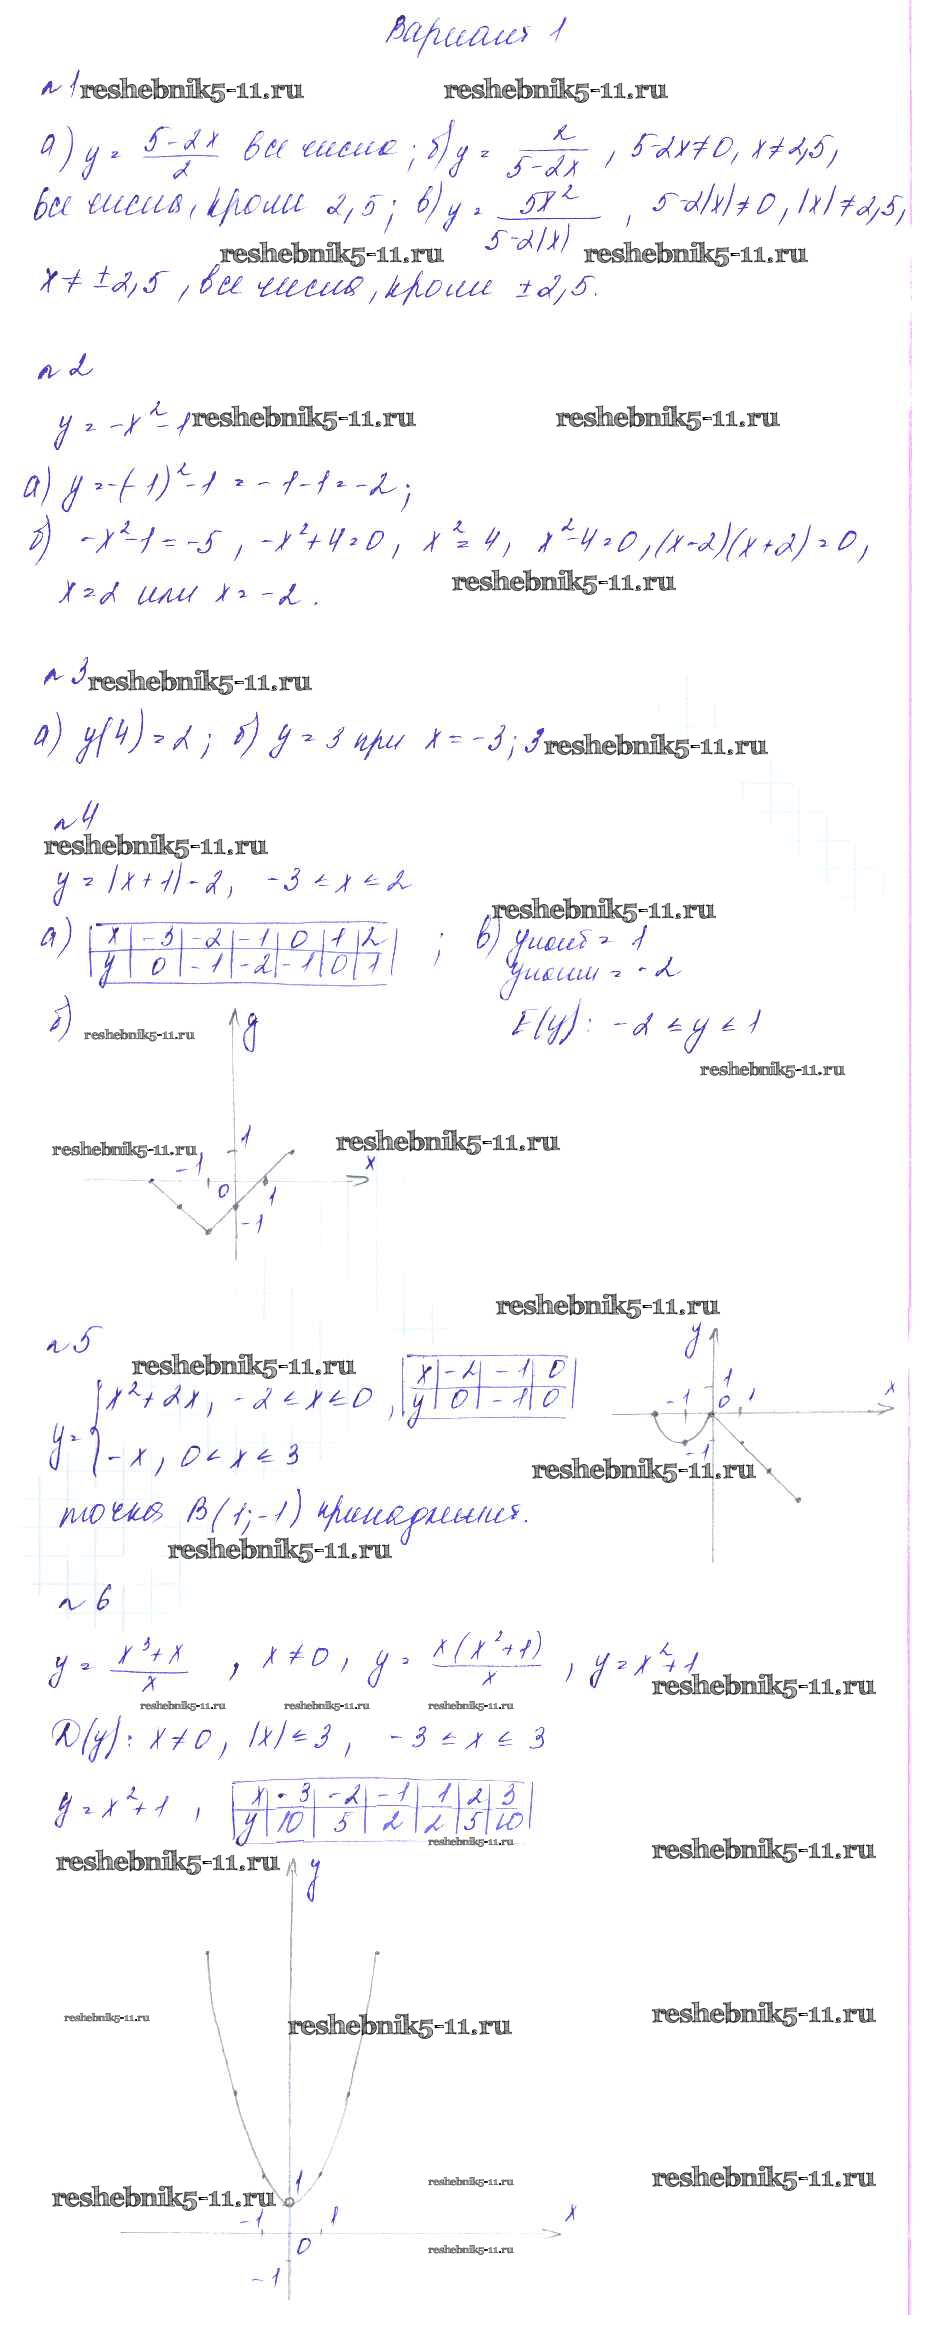 Вариант 1
№1 reshebnik5-11.ru reshebnik5-11.ru
а) y = (5-2x)/2 все числа; б) y = 2/(5-2x), 5-2x≠0, x≠2,5,
все числа, кроме 2,5; в) y = 5x²/(5-2|x|), 5-2|x|≠0, |x|≠2,5,
reshebnik5-11.ru reshebnik5-11.ru
x≠±2,5, все числа, кроме ±2,5.
№2
y = -x²-1 reshebnik5-11.ru reshebnik5-11.ru
а) y = -(-1)²-1 = -1-1 = -2;
б) -x²-1 = -5, -x²+4=0, x²=4, x²-4=0, (x-2)(x+2)=0,
reshebnik5-11.ru
x=2 или x=-2.
№3 reshebnik5-11.ru
а) y(4)=2; б) y=3 при x=-3; 3 reshebnik5-11.ru
№4
reshebnik5-11.ru
y = |x+1|-2, -3≤x≤2
reshebnik5-11.ru
а) x -3 -2 -1 0 1 2 ; в) yнаиб = 1
y 0 -1 -2 -1 0 1 yнаим = -2
б) reshebnik5-11.ru y E(y): -2≤y≤1
reshebnik5-11.ru
1
reshebnik5-11.ru reshebnik5-11.ru
-1 x
0 1
-1
reshebnik5-11.ru
№5 y
reshebnik5-11.ru
y = { x²+2x, -2≤x≤0, x -2 -1 0
y 0 -1 0
-x, 0<x≤3
1 x
-1 0 1
-1
reshebnik5-11.ru
точка B(1;-1) принадлежит.
reshebnik5-11.ru
№6
y = (x³+x)/x, x≠0, y = x(x²+1)/x, y=x²+1
reshebnik5-11.ru
reshebnik5-11.ru reshebnik5-11.ru reshebnik5-11.ru
D(y): x≠0, |x|≤3, -3≤x≤3
y = x²+1, x -3 -2 -1 1 2 3
y 10 5 2 2 5 10
reshebnik5-11.ru
reshebnik5-11.ru reshebnik5-11.ru
y
reshebnik5-11.ru reshebnik5-11.ru reshebnik5-11.ru
reshebnik5-11.ru reshebnik5-11.ru
1
reshebnik5-11.ru
-1 1 x
0
reshebnik5-11.ru
-1